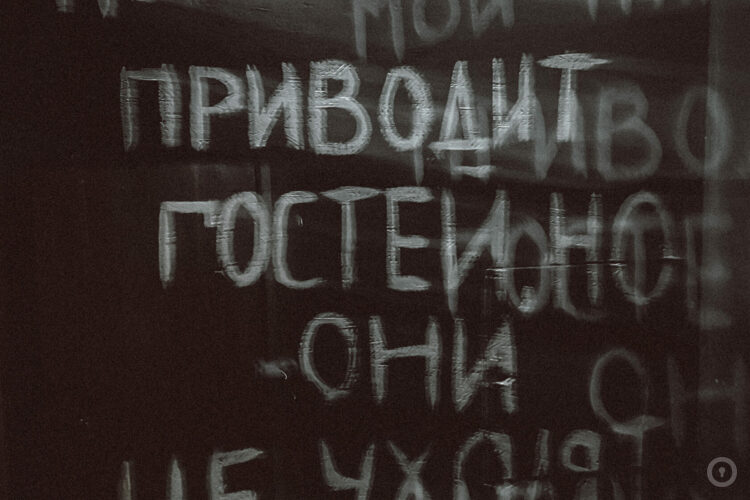 МОЙ
ПРИВОДИТ
ГОСТЕЙ, НО
ОНИ
НЕ УХОДЯТ